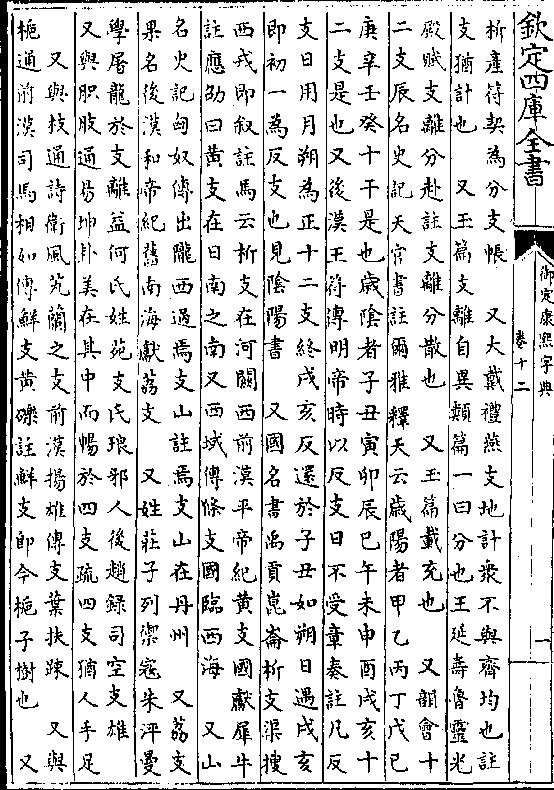 欽定四庫全書
御定康熙字典
卷十二
一
析產符契為分支帳　又大戴禮燕支地計衆不與齊均也註
支猶計也　又玉篇支離自異類篇一曰分也王延壽魯靈光
殿賦支離分赴註支離分散也　又玉篇載充也　又韻會十
二支辰名史記天官書註爾雅釋天云歲陽者甲乙丙丁戊己
庚辛壬癸十干是也歲陰者子丑寅卯辰巳午未申酉戌亥十
二支是也又後漢王符傳明帝時以反支日不受章奏註凡反
支日用月朔為正十二支終戌亥反還於子丑如朔日遇戌亥
即初一為反支也見陰陽書　又國名書禹貢崑崙析支渠搜
西戎即叙註馬云析支在河關西前漢平帝紀黃支國獻犀牛
註應劭曰黃支在日南之南又西域傳條支國臨西海　又山
名史記匈奴傳出隴西過焉支山註焉支山在丹州　又荔支
果名後漢和帝紀舊南海獻荔支　又姓莊子列禦寇朱泙曼
學屠龍於支離益何氏姓苑支氏琅邪人後趙錄司空支雄
又與胑肢通易坤卦美在其中而暢於四支疏四支猶人手足
又與枝通詩衛風芃蘭之支前漢揚雄傳支葉扶踈　又與
梔通前漢司馬相如傳鮮支黃礫註鮮支即今梔子樹也　又